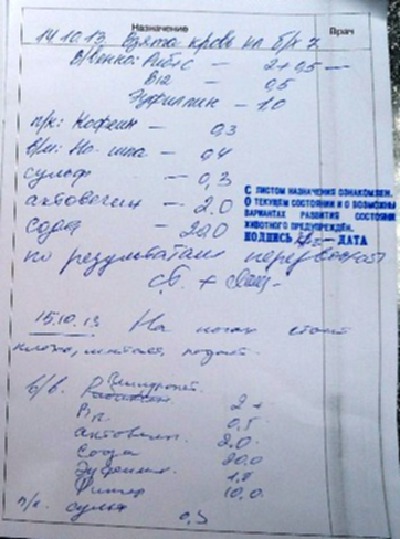 Назначение
Врач
14.10.13 Взята кровь на б/х 7
В/венно: Рибокс — 2+0,5 —
В12 — 0,5
Эуфиллин — 1,0
п/к: Кофеин — 0,3
в/м: Но-шпа — 0,4
сульф — 0,3
актовегин — 2.0
сода — 20,0
С ЛИСТОМ НАЗНАЧЕНИЯ ОЗНАКОМЛЕН.
О ТЕКУЩЕМ СОСТОЯНИИ И О ВОЗМОЖН
ВАРИАНТАХ РАЗВИТИЯ СОСТОЯНИ
ЖИВОТНОГО ПРЕДУПРЕЖДЕН.
ПОДПИСЬ ДАТА
по результатам
15.10.13 На ногах стоит
плохо,
в/в.
В12. 0,5
актовегин. 2.0
Сода 20.0
Эуфилл. 1,0
10,0.
п/к. сульф 0,3